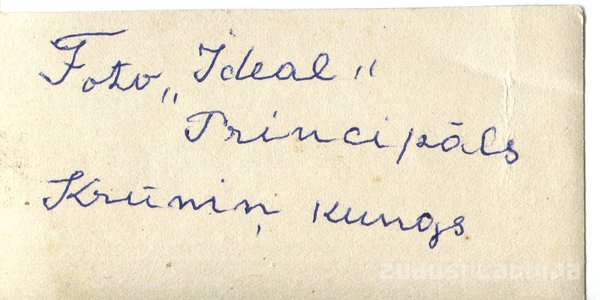 Foto „Ideal"
Principāls
Krūniņ kungs
zudusi Latvija